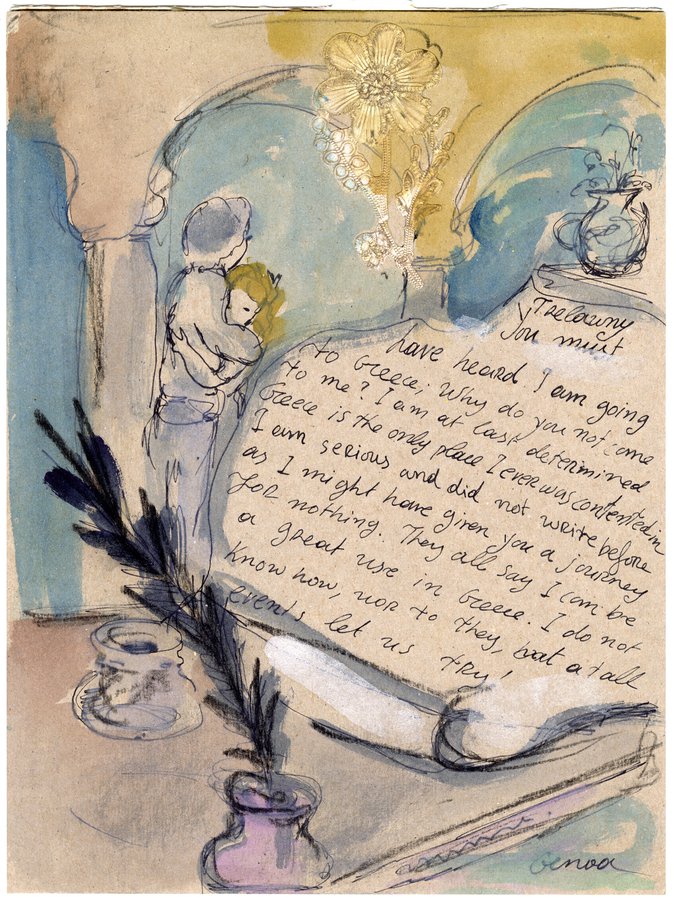 Trelawny
You must
have heard I am going
to Greece; Why do you not come
to me? I am at last determined
Greece is the only place I ever was contented in
I am serious and did not write before
as I might have given you a journey
for nothing. They all say I can be
a great use in Greece. I do not
know how, nor to they, but at all
events let us try!
Genoa